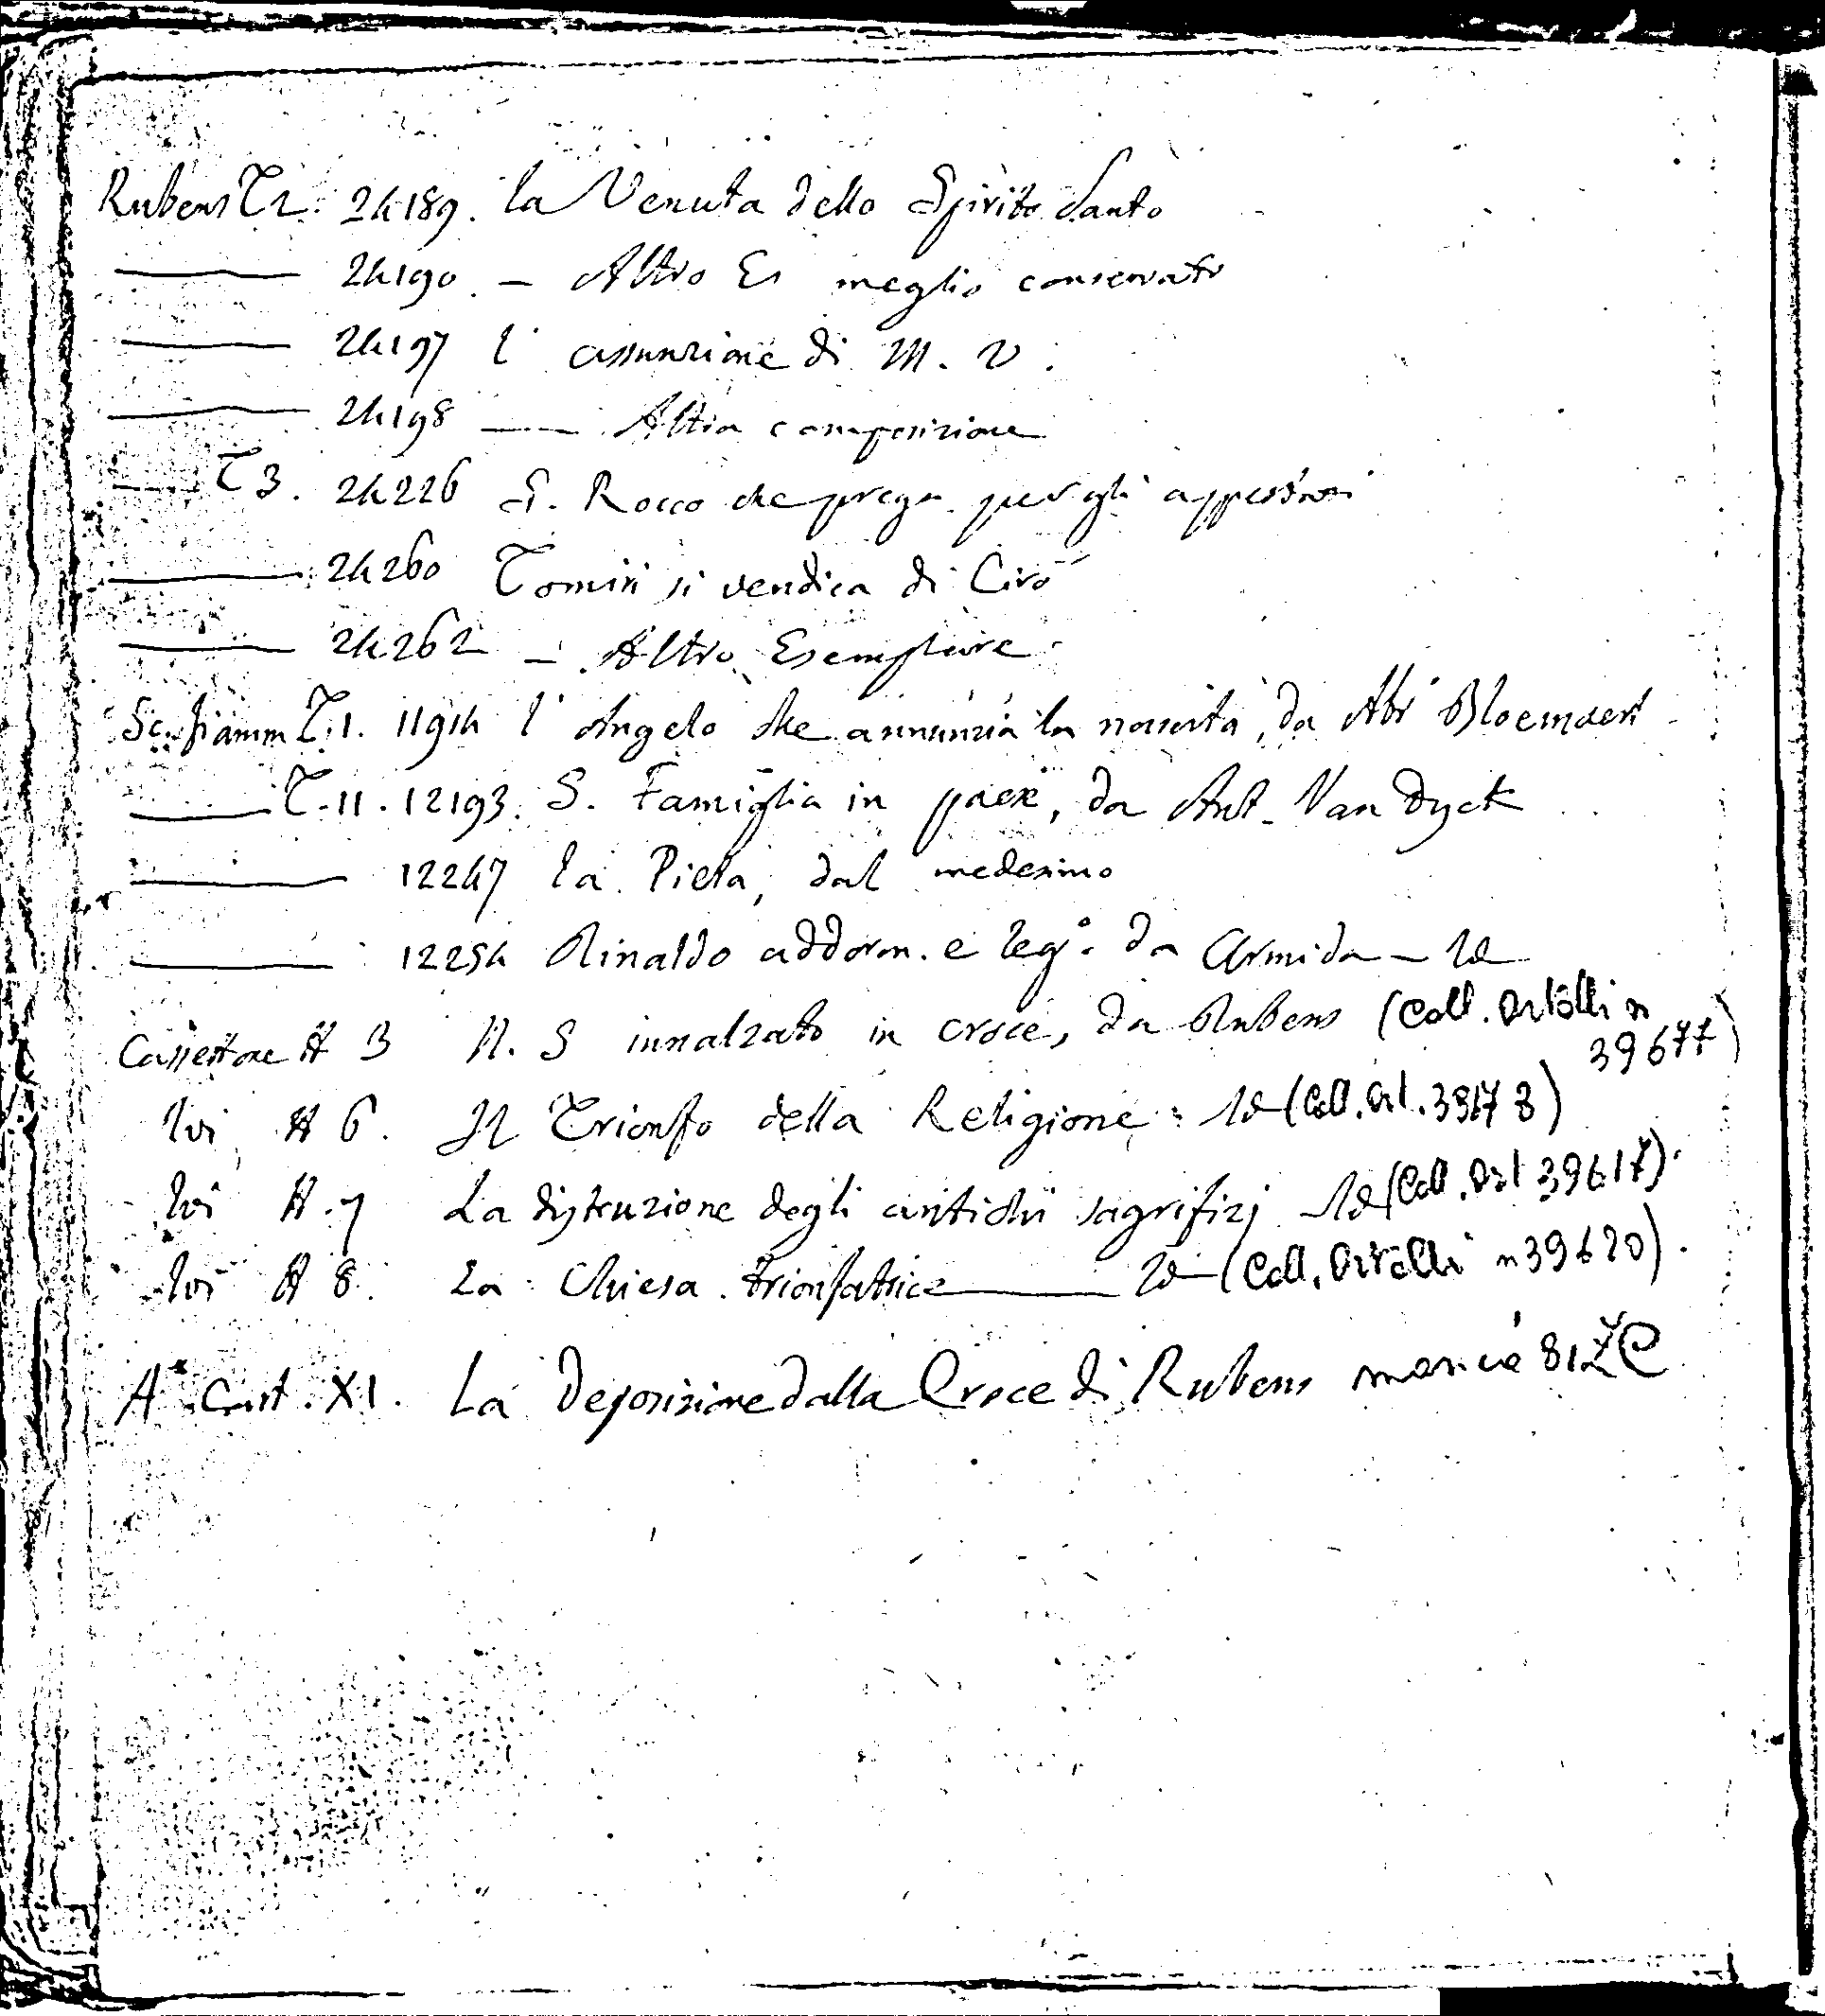 Rubens T2. 24189. la Venuta dello Spirito Santo
24190 - Altro Es meglio conservato
24197 l'assunzione di M. V.
24198 Altra composizione
T3. 24226 S. Rocco che prega per gli appestati
24260 Tomiri si vendica di Ciro
24262 - Altro Esemplare
Sc. fiamm T.1. 11914 l'Angelo che annunzia la nascita, da Abr Bloemaert
T.11. 12193. S. Famiglia in paese, da Ant. Van Dyck
12247 la Pieta, dal medesimo
12254 Rinaldo addorm. e leg.° da Armida - Id
Cassettone A 3 N. S innalzato in croce, da Rubens (Coll. Ortalli n
39677)
Ivi A 6. Il Trionfo della Religione = Id (Coll. Ort.
Ivi A.7 La distruzione degli antichi sagrifizj Id (Coll. Ort 39617).
Ivi A 8. La Chiesa trionfatrice Id (Coll. Ortalli n 39620).
XI. La Deposizione dalla Croce di Rubens